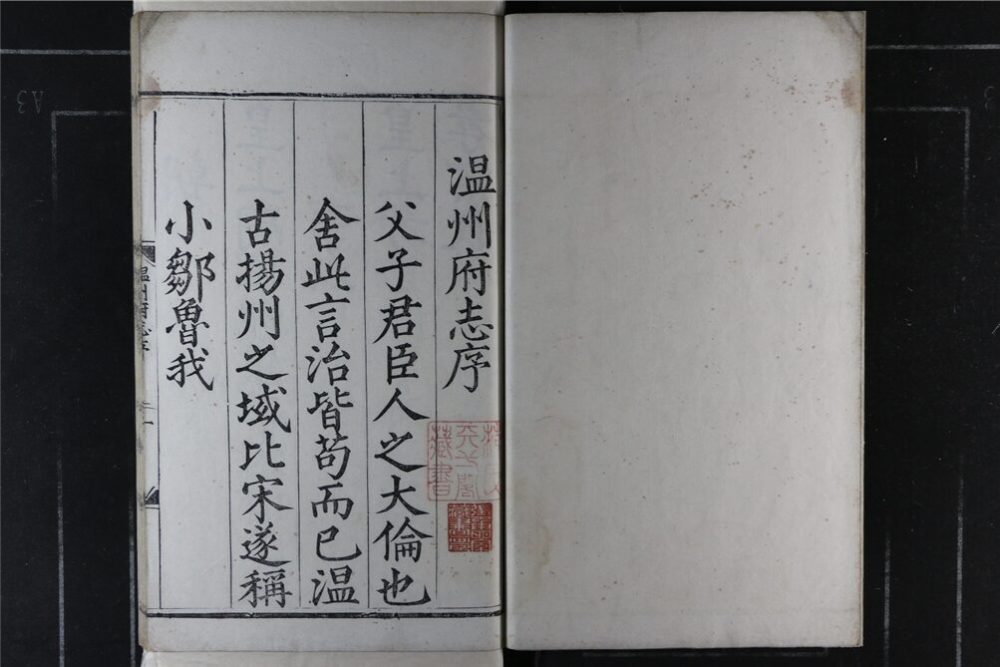 温州府志序
父子君臣人之大倫也
舍此言治皆苟而已温
古揚州之域比宋遂稱
小鄒魯我
温州府志序
藏書